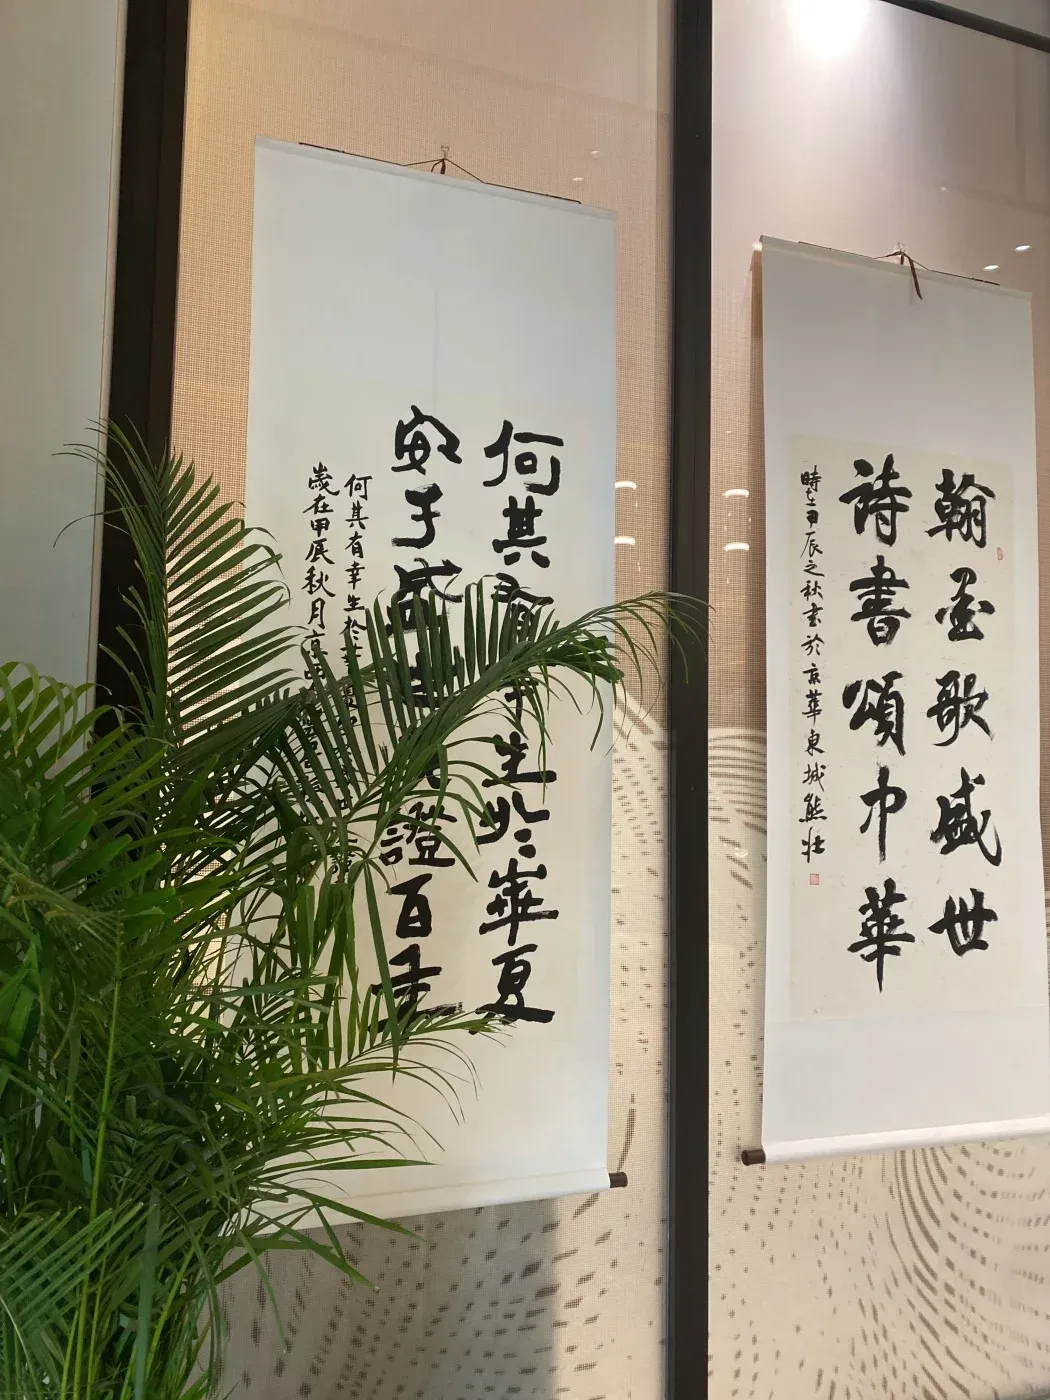 翰墨歌盛世
詩書頌中華
時在甲辰之秋書於京華東城熊壯
何其有幸生於華夏
安于盛世證百年
何其有幸生於華夏
歲在甲辰秋月京